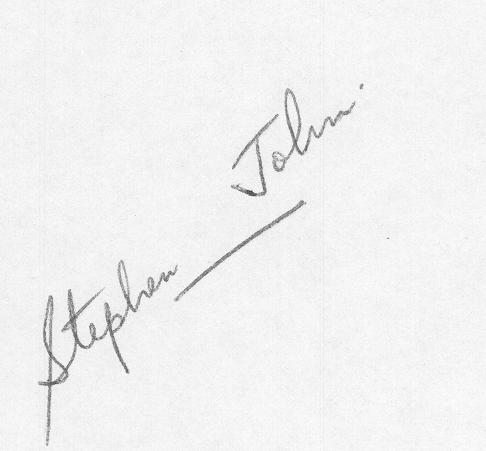 Stephen John.